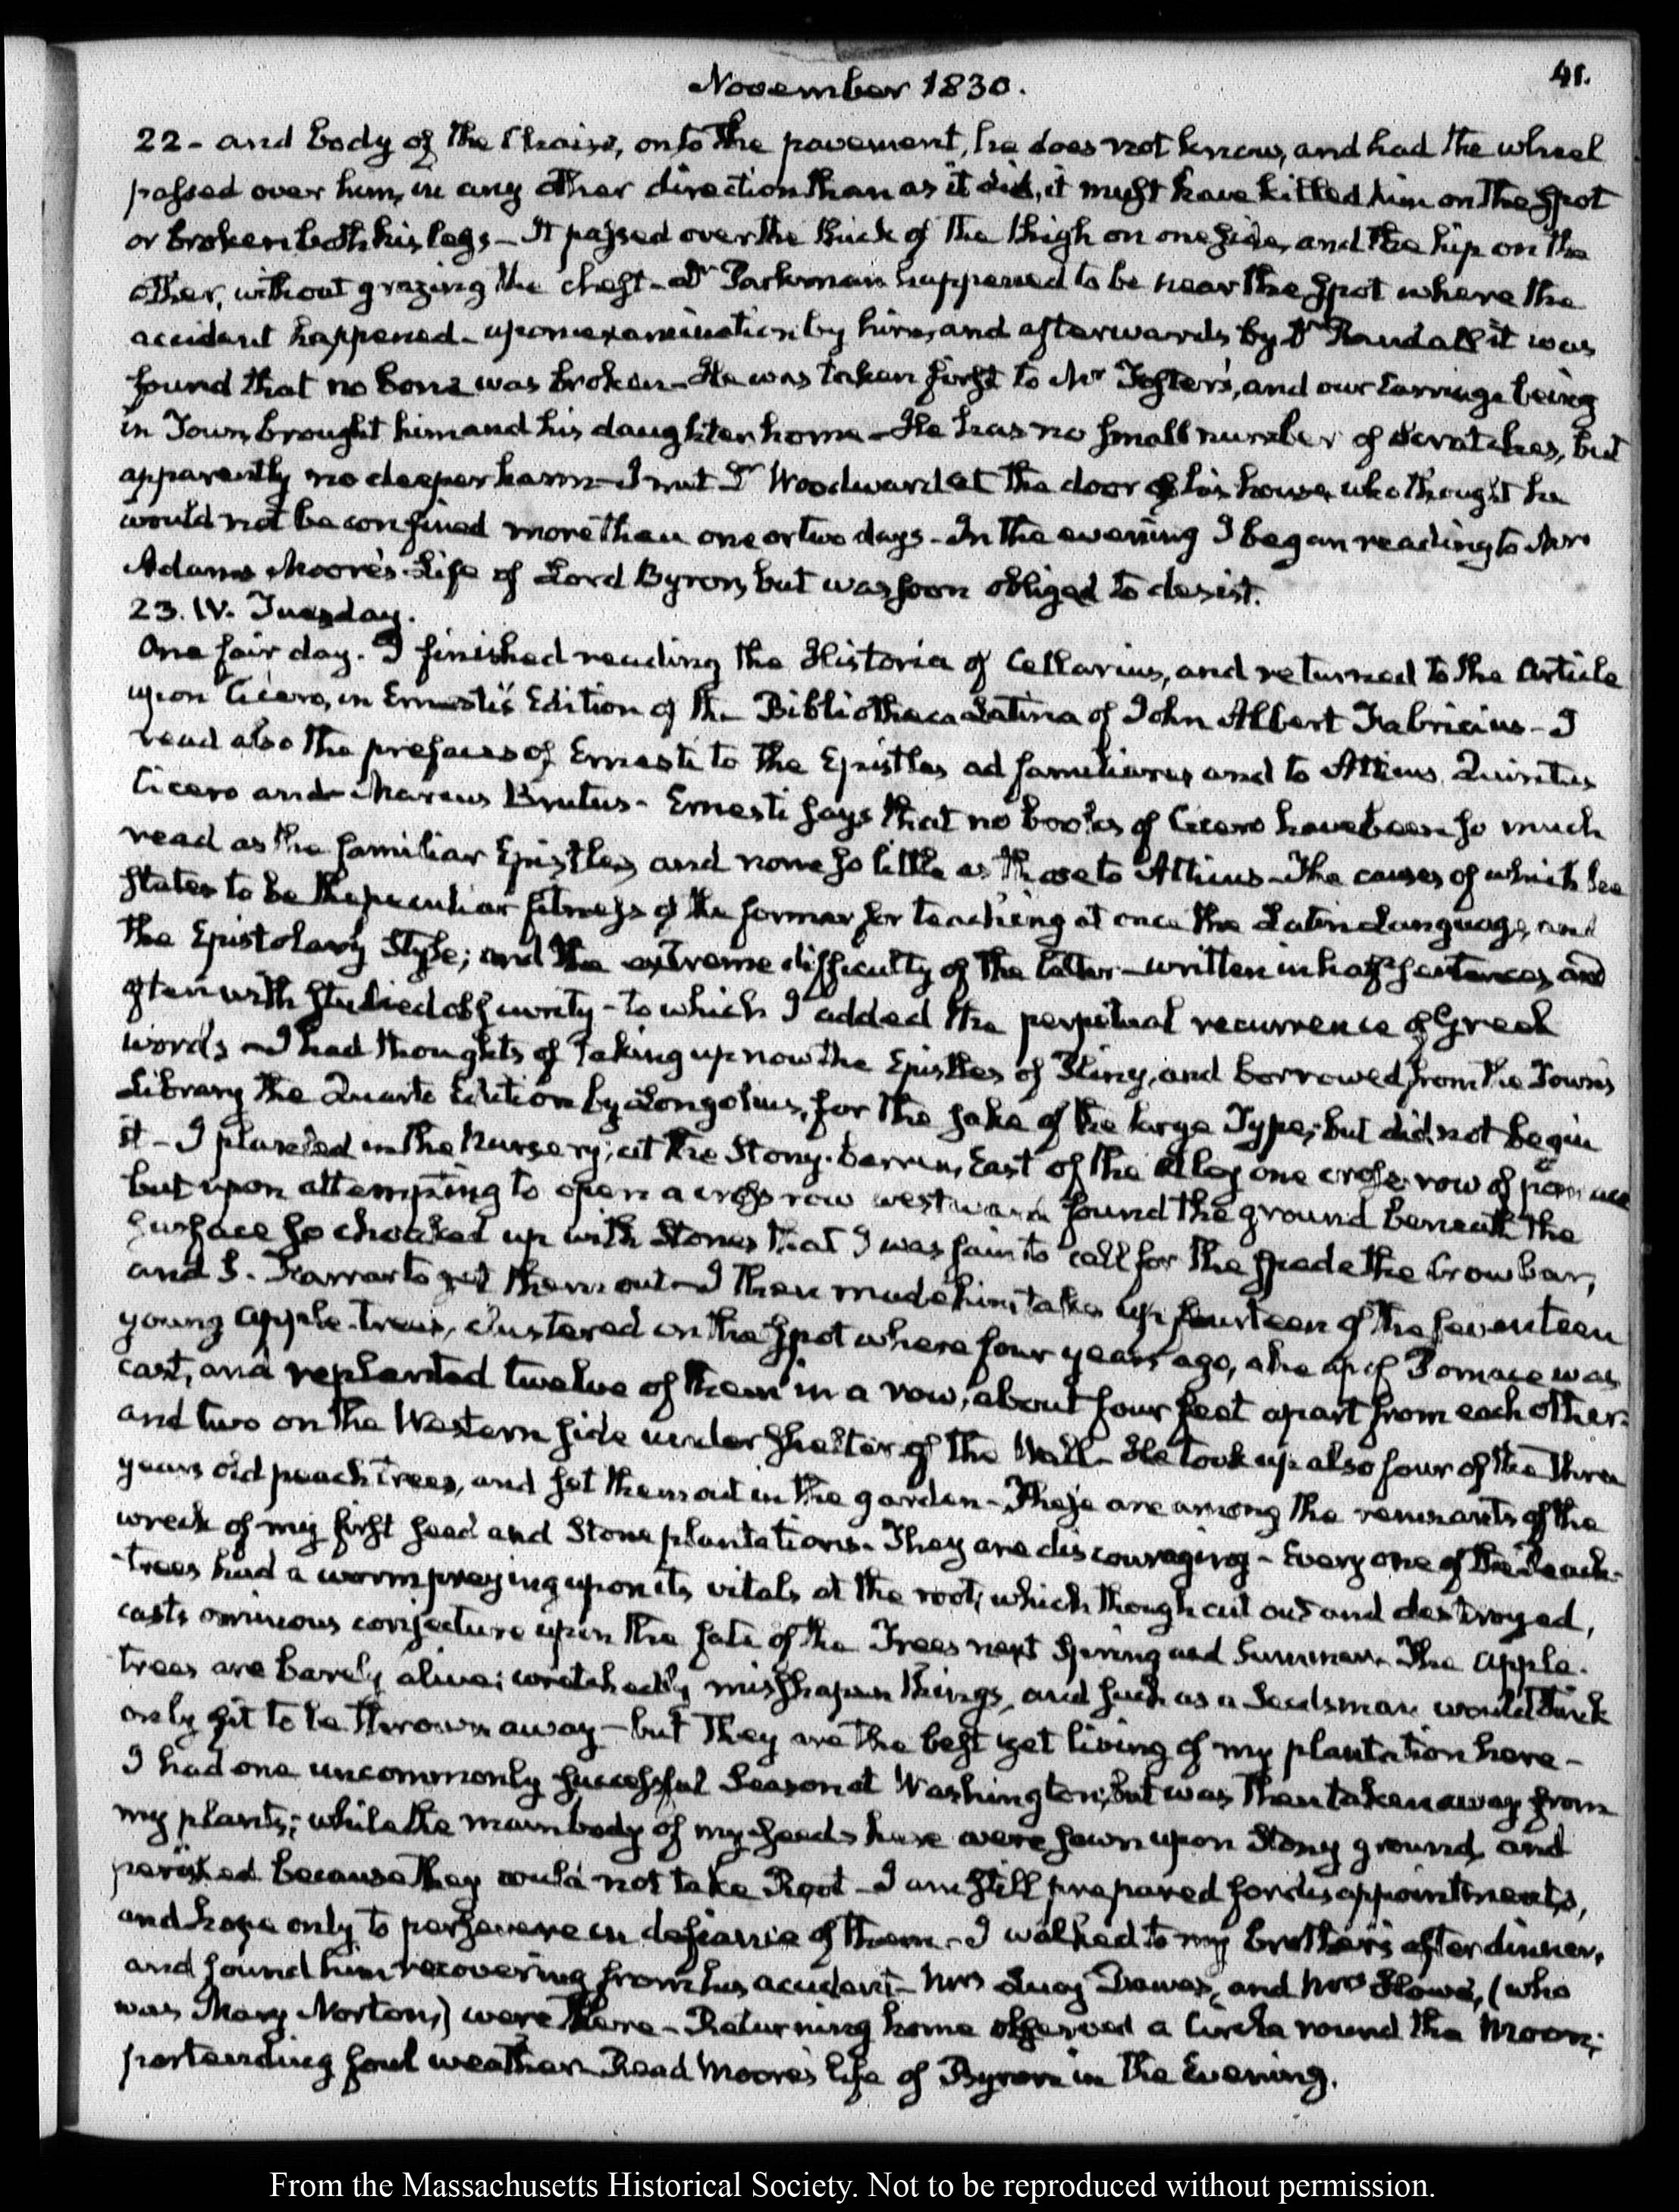 November 1830.
41.
22 - and body of the Chaise, onto the pavement, he does not know, and had the wheel
passed over him, in any other direction than as it did, it might have killed him on the Spot
or broken both his legs - It passed over the thick of the thigh on one side, and the hip on the
other, without grazing the chest - Dr Parkman happened to be near the Spot where the
accident happened - upon examination by him, and afterwards by Dr Randall it was
found that no bone was broken - He was taken first to Mr Foster's, and our Carriage being
in Town, brought him and his daughter home - He has no small number of scratches, but
apparently no deeper harm - I met Dr Woodward at the door of his house, who thought he
would not be confined more than one or two days - In the evening I began reading to Mrs
Adams Moore's Life of Lord Byron, but was soon obliged to desist.
23. IV. Tuesday.
One fair day. I finished reading the Historia of Cellarius, and returned to the Article
upon Cicero, in Ernesti's Edition of the Bibliotheca Latina of John Albert Fabricius - I
read also the prefaces of Ernesti to the Epistles ad familiares, and to Atticus, Quintus
Cicero and Marcus Brutus - Ernesti says that no books of Cicero have been so much
read as the familiar Epistles, and none so little as those to Atticus - The causes of which he
states to be the peculiar fitness of the former for teaching at once the Latin Language, and
the Epistolary Style; and the extreme difficulty of the latter - written in half sentences, and
often with studied obscurity - to which I added the perpetual recurrence of Greek
words - I had thoughts of taking up now the Epistles of Pliny, and borrowed from the Town's
Library the Quarto Edition by Longolius, for the sake of the large Type; but did not begin
it - I planted in the Nursery; at the Stony-barren, East of the Alley one cross row of pomace
but upon attempting to open a cross row westward found the ground beneath the
surface so choaked up with Stones that I was fain to call for the spade the Crow bar,
and S. Farrar to get them out - I then made him take up fourteen of the seventeen
young apple-trees, clustered on the Spot where four years ago, the Pomace was
cast, and replanted twelve of them in a row, about four feet apart from each other.
and two on the Western side under shelter of the Wall - He took up also four of the three
years old peach trees, and set them out in the garden - These are among the remnants of the
wreck of my first seed and Stone plantations. They are discouraging - Every one of the Peach-
trees had a worm preying upon its vitals at the root; which though cut out and destroyed,
casts ominous conjecture upon the fate of the Trees next Spring and Summer. The apple-
trees are barely alive; wretchedly misshapen things, and such as a Seedsman would think
only fit to be thrown away - but they are the best yet living of my plantation here -
I had one uncommonly successful Season at Washington; but was then taken away from
my plants; while the main body of my seeds here were sown upon Stony ground, and
perished because they could not take Root - I am still prepared for disappointments,
and hope only to persevere in defiance of them - I walked to my brother's after dinner,
and found him recovering from his accident - Mrs Dawes, and Mrs Stowe, (who
was Mary Norton,) were there - Returning home observed a Circle round the Moon;
portending foul weather - Read Moore's life of Byron in the Evening.
From the Massachusetts Historical Society. Not to be reproduced without permission.